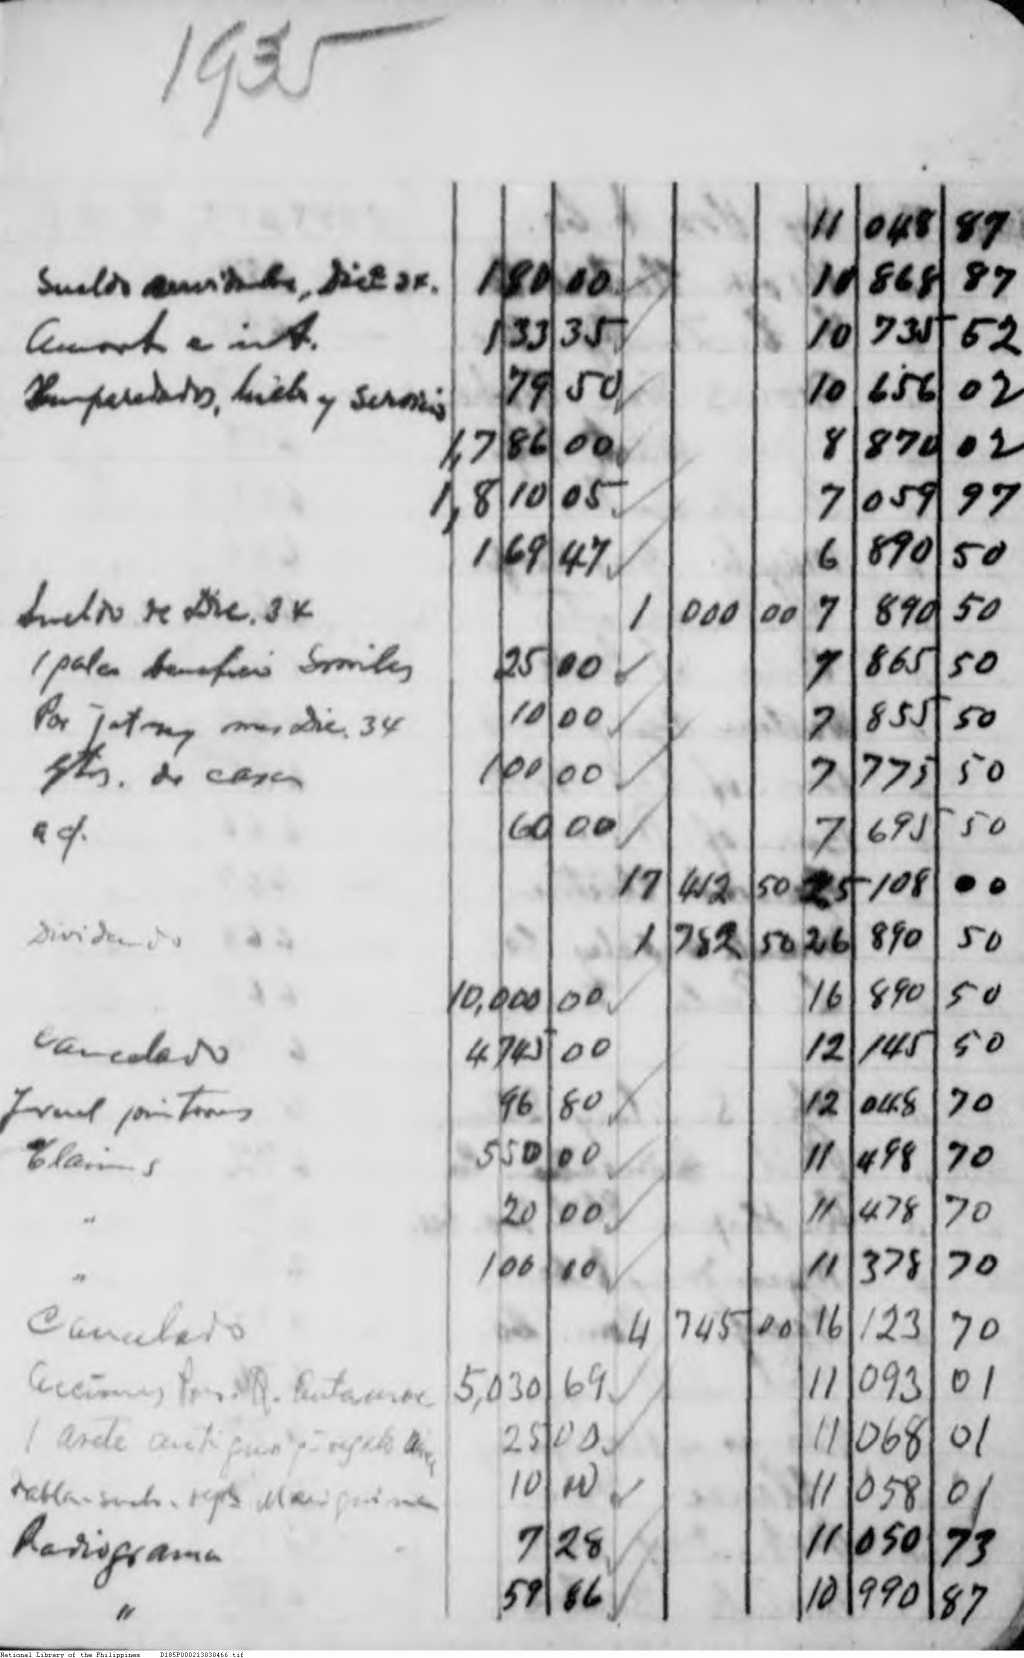 1935
11 048 87
Sueldo Dice 34. 180 00 10 868 87
Amort. e int. 133 35 10 735 52
Emparedados, hielo y servicio 79 50 10 656 02
1,786 00 8 870 02
1,810 05 7 059 97
169 47 6 890 50
Sueldo de Dic. 34 1 000 00 7 890 50
1 palco beneficio 25 00 7 865 50
Por mes Dic. 34 10 00 7 855 50
gtos. de casa 100 00 7 775 50
60 00 7 695 50
17 412 50 25 108 00
Dividendo 1 782 50 26 890 50
10,000 00 16 890 50
Cancelado 4745 00 12 145 50
96 80 12 048 70
Claims 550 00 11 498 70
" 20 00 11 478 70
" 100 00 11 378 70
Cancelado 4 745 00 16 123 70
Acciones 5,030 69 11 093 01
1 arete antiguo regalo 25 00 11 068 01
10 00 11 058 01
Radiograma 7 28 11 050 73
" 59 86 10 990 87
National Library of the Philippines D185P000213030466.tif